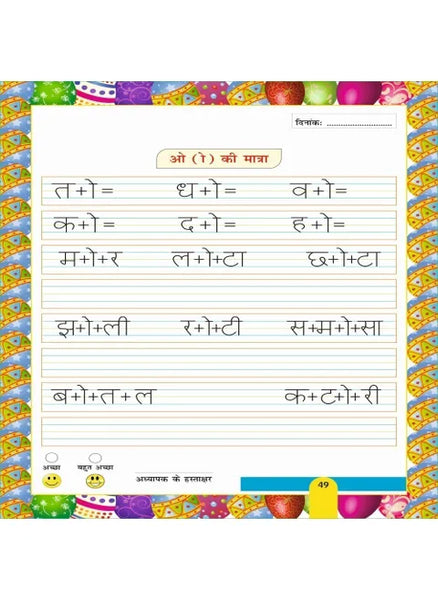 दिनांक: ........................
ओ (ो) की मात्रा
त+ो= ध+ो= व+ो=
क+ो= द+ो= ह+ो=
म+ो+र ल+ो+टा छ+ो+टा
झ+ो+ली र+ो+टी स+म+ो+सा
ब+ो+त+ल क+ट+ो+री
अच्छा बहुत अच्छा
अध्यापक के हस्ताक्षर
49